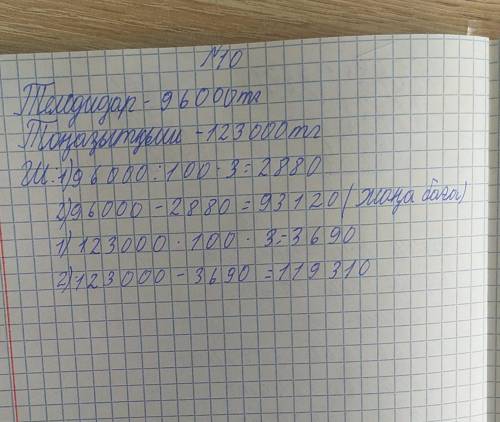 №10
Теледидар - 96000тг
Тоңазытқыш - 123000тг
Ш: 1) 96000 : 100 · 3 = 2880
2) 96000 - 2880 = 93120 (жаңа бағасы)
1) 123000 · 100 · 3 = 3690
2) 123000 - 3690 = 119310